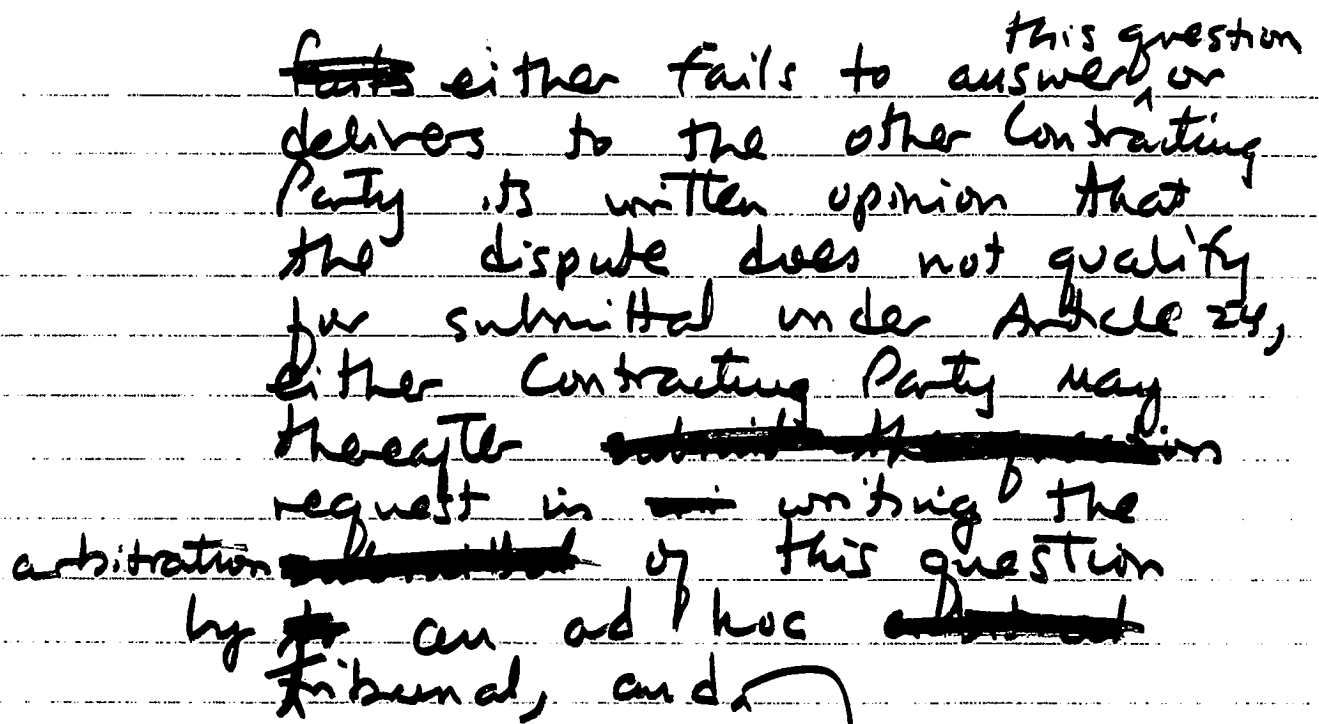 this question
either fails to answer, or
delivers to the other Contracting
Party its written opinion that
the dispute does not qualify
for submittal under Article 24,
either Contracting Party may
thereafter
request in writing the
arbitration of this question
by an ad hoc
Tribunal, and